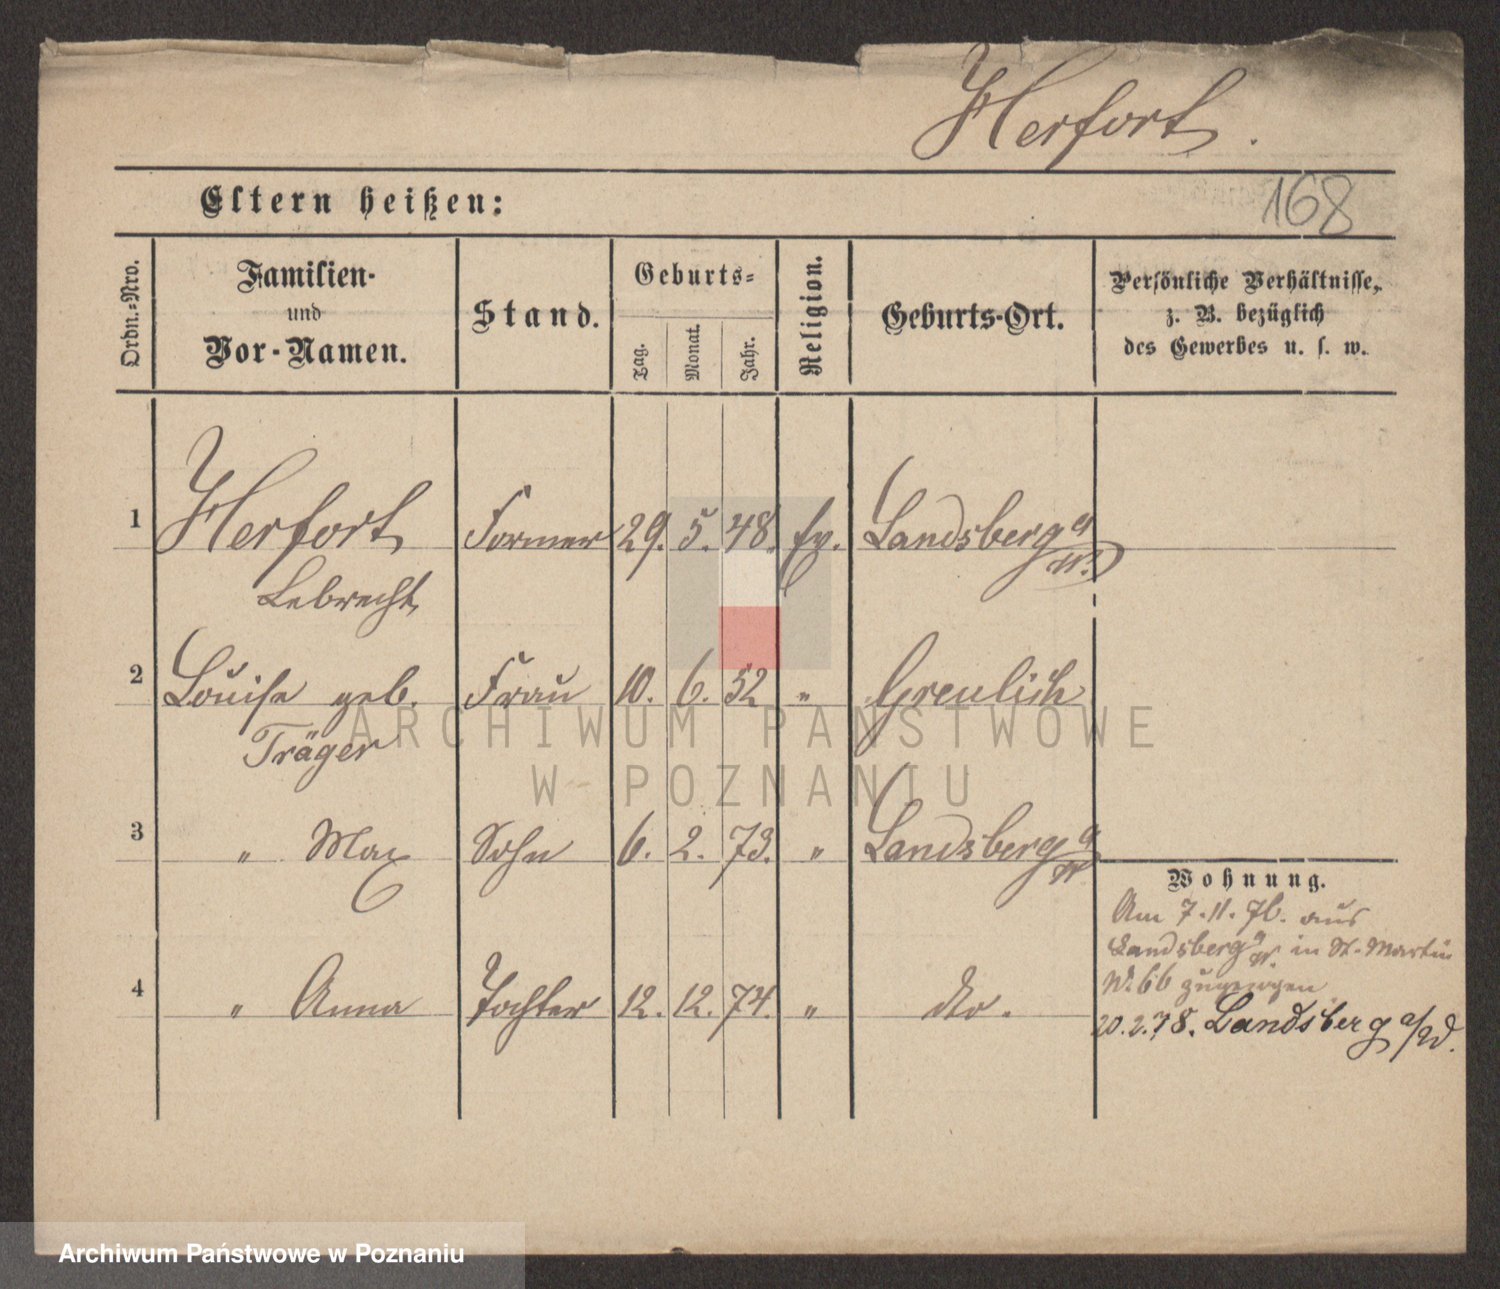 Herfort.
Eltern heißen:
168
Ordn.-Nro.
Familien-
und
Vor-Namen.
Stand.
Geburts-
Tag.
Monat.
Jahr.
Religion.
Geburts-Ort.
Persönliche Verhältnisse,
z. B. bezüglich
des Gewerbes u. s. w.
1 Herfort Former 29. 5. 48. Ev. Landsberg a/
W.
Lebrecht
2 Louise geb. Frau 10. 6. 52 " Greulich
Träger
3 " Max Sohn 6. 2. 73. " Landsberg a/
W
Wohnung.
Am 7.11.76. aus
Landsberg a/W. in St. Martin
No. 66 zugezogen
4 " Anna Tochter 12. 12. 74. " dto.
20.2.78. Landsberg a/W.
ARCHIWUM PAŃSTWOWE
W POZNANIU
Archiwum Państwowe w Poznaniu